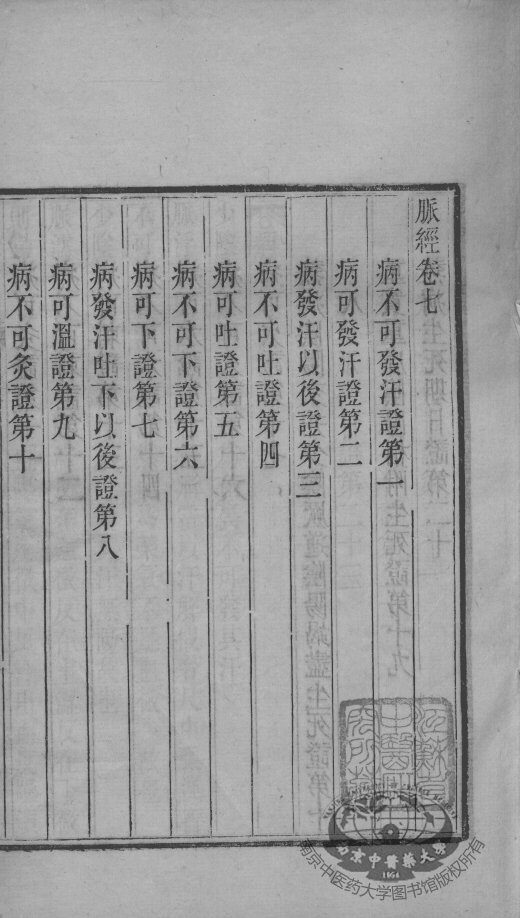 脈經卷七
病不可發汗證第一
病可發汗證第二
病發汗以後證第三
病不可吐證第四
病可吐證第五
病不可下證第六
病可下證第七
病發汗吐下以後證第八
病可溫證第九
病不可灸證第十
南京中醫藥大學
1954
南京中医药大学图书馆版权所有